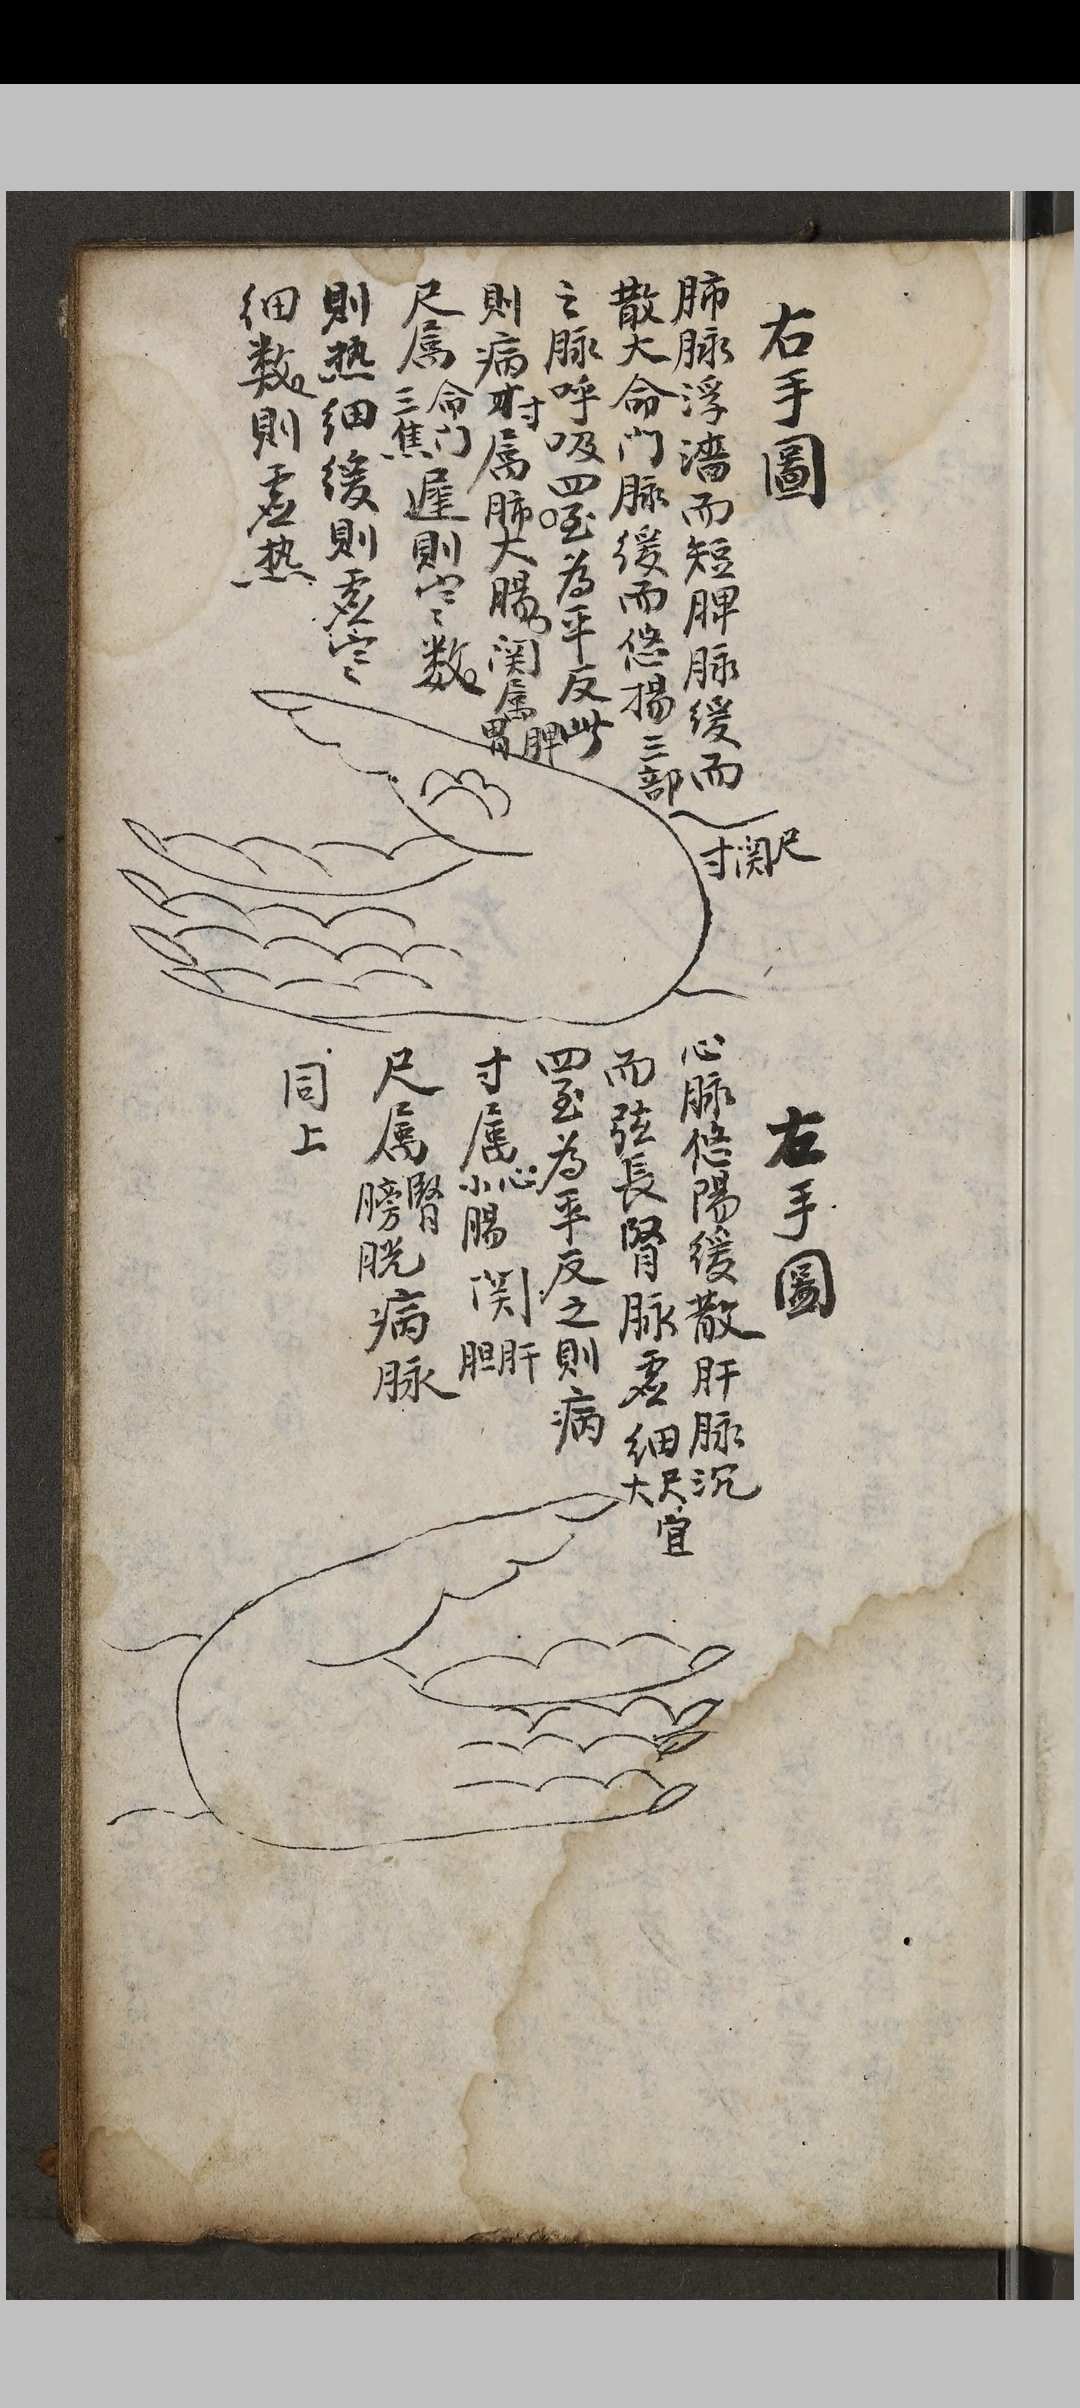 右手圖
肺脉浮濇而短脾脉緩而
散大命門脉緩而悠揚三部
之脉呼吸四至為平反此
則病寸属肺大腸関属脾胃
尺属命门三焦遅則寒数
則热细缓則虚寒
细数則虚热
尺
関
寸
右手圖
心脉悠陽缓散肝脉沉
而弦長腎脉虚细尺宜大
四至為平反之則病
寸属心小腸関肝胆
尺属腎膀胱病脉
同上